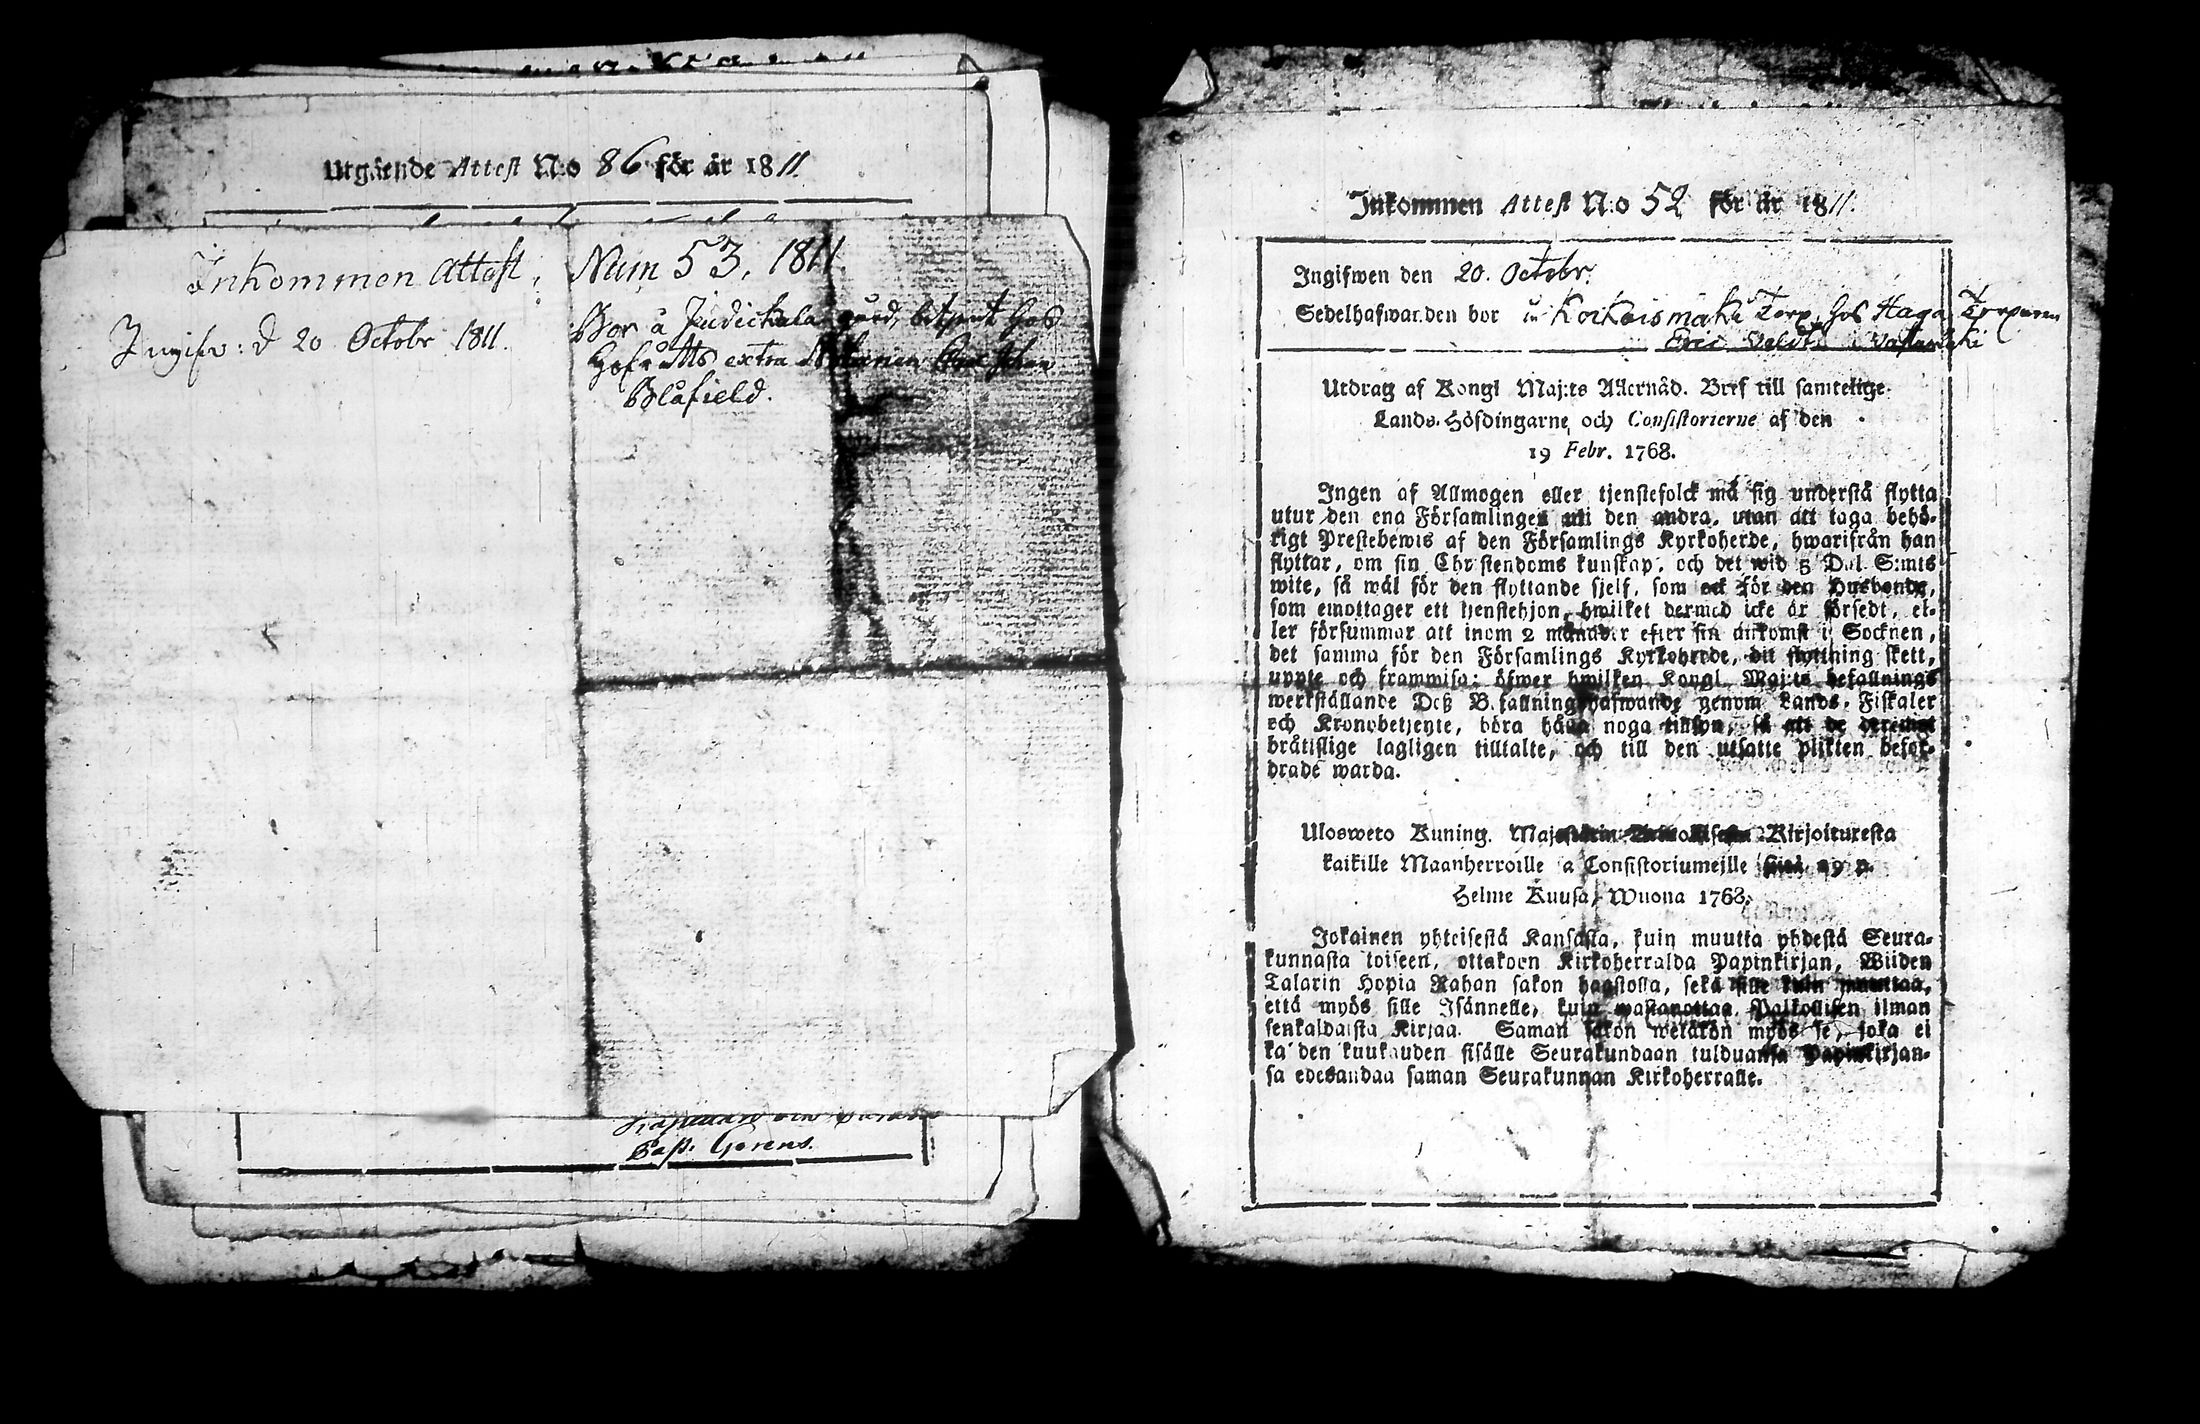 Utgående Attest N:o 86 för år 1811.
Inkommen Attest, Num 53, 1811.
Ingifv: d 20 Octobr 1811.
Bor å Judickala gård, betjent hos
Hofrätts extra
Blåfield.
Pass. Gorens.
Inkommen Attest N:o 52 för år 1811.
Ingifwen den 20. Octobr.
Sedelhafwanden bor Torp, hos Haga Torparen
Eric
Utdrag af Kongl Maj:ts Allernåd. Bref till samtelige
Lands-Höfdingarne och Consistorierne af den
19 Febr. 1768.
Ingen af Allmogen eller tjenstefolck må sig understå flytta
utur den ena Församlingen uti den andra, utan att taga behö-
rigt Prestebewis af den Församlings Kyrkoherde, hwarifrån han
flyttar, om sin Christendoms kunskap, och det wid 5 Dal. S:mts
wite, så wäl för den flyttande sjelf, som ock för den Husbonde,
som emottager ett tjenstehjon, hwilket dermed icke är försedt, el-
ler försummar att inom 2 månader efter sin ankomst i Socknen,
det samma för den Församlings Kyrkoherde, dit flyttning skett,
uppte och frammisa: öfwer hwilken Kongl. Maj:ts befallnings
werkställande Deß Befallningshafwande genom Lands-Fiskaler
och Kronobetjente, böra hafwa noga tillsyn, så att de deremot
bråtislige lagligen tilltalte, och till den utsatte plikten befor-
drade warda.
Ulosweto Kuning. Majestetin Kirjoituresta
kaikille Maanherroille ja Consistoriumeille 19 p.
Helme Kuusa, Wuona 1768.
Jokainen yhteisestä Kansasta, kuin muutta yhdestä Seura-
kunnasta toiseen, ottakoon Kirkoherralda Papinkirjan, Wiiden
Talarin Hopia Rahan sakon haastolla, sekä sille kuin muuttaa,
että myös sille Isännelle, kuin wastanottaa Palkollisen ilman
senkaldaista Kirjaa. Saman sakon wetäkön myös se, joka ei
kahden kuukauden sisälle Seurakundaan tulduansa Papinkirjan-
sa edesandaa saman Seurakunnan Kirkoherralle.